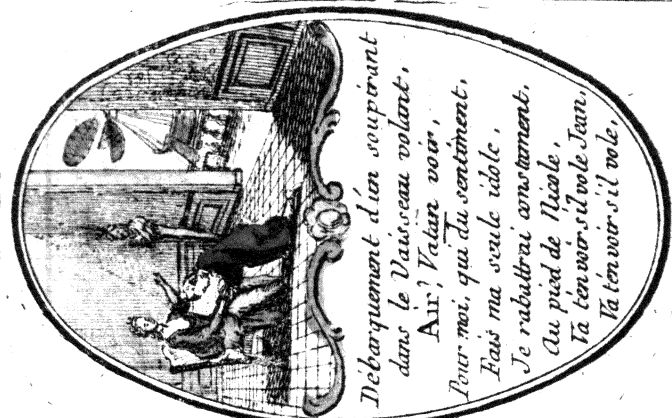 Débarquement d'un soupirant
dans le Vaisseau volant,
Air, Vatan voir,
Pour moi, qui du sentiment,
Fais ma seule idole,
Je rabattrai constament,
Au pied de Nicole,
Va t'en voir s'il vole Jean,
Va t'en voir s'il vole,